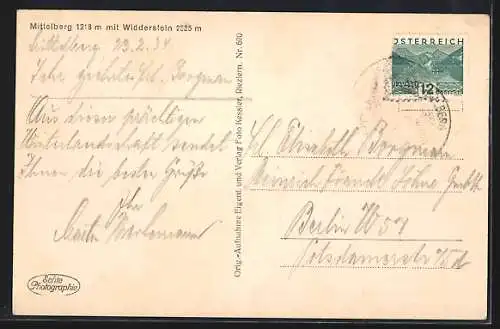 Mittelberg 1218 m mit Widderstein 2535 m
Mittelberg 23.2.34
Sehr geehrtes Frl. Borgmann
Aus dieser prächtigen
Winterlandschaft sendet
Ihnen die besten Grüße
Ihr
Martin
Echte
Photographie
Orig.-Aufnahme Eigent. und Verlag Foto Kessler, Riezlern. Nr. 610
ÖSTERREICH
12
GROSCHEN
Frl. Elisabeth Borgmann
Heinrich Söhne GmbH
Berlin W 57
Potsdamerstr. 75d